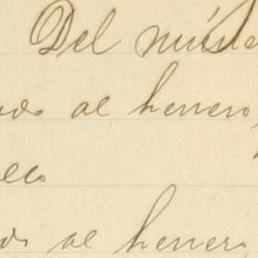 Del mús
ado al herrero,
eco
do al herrero